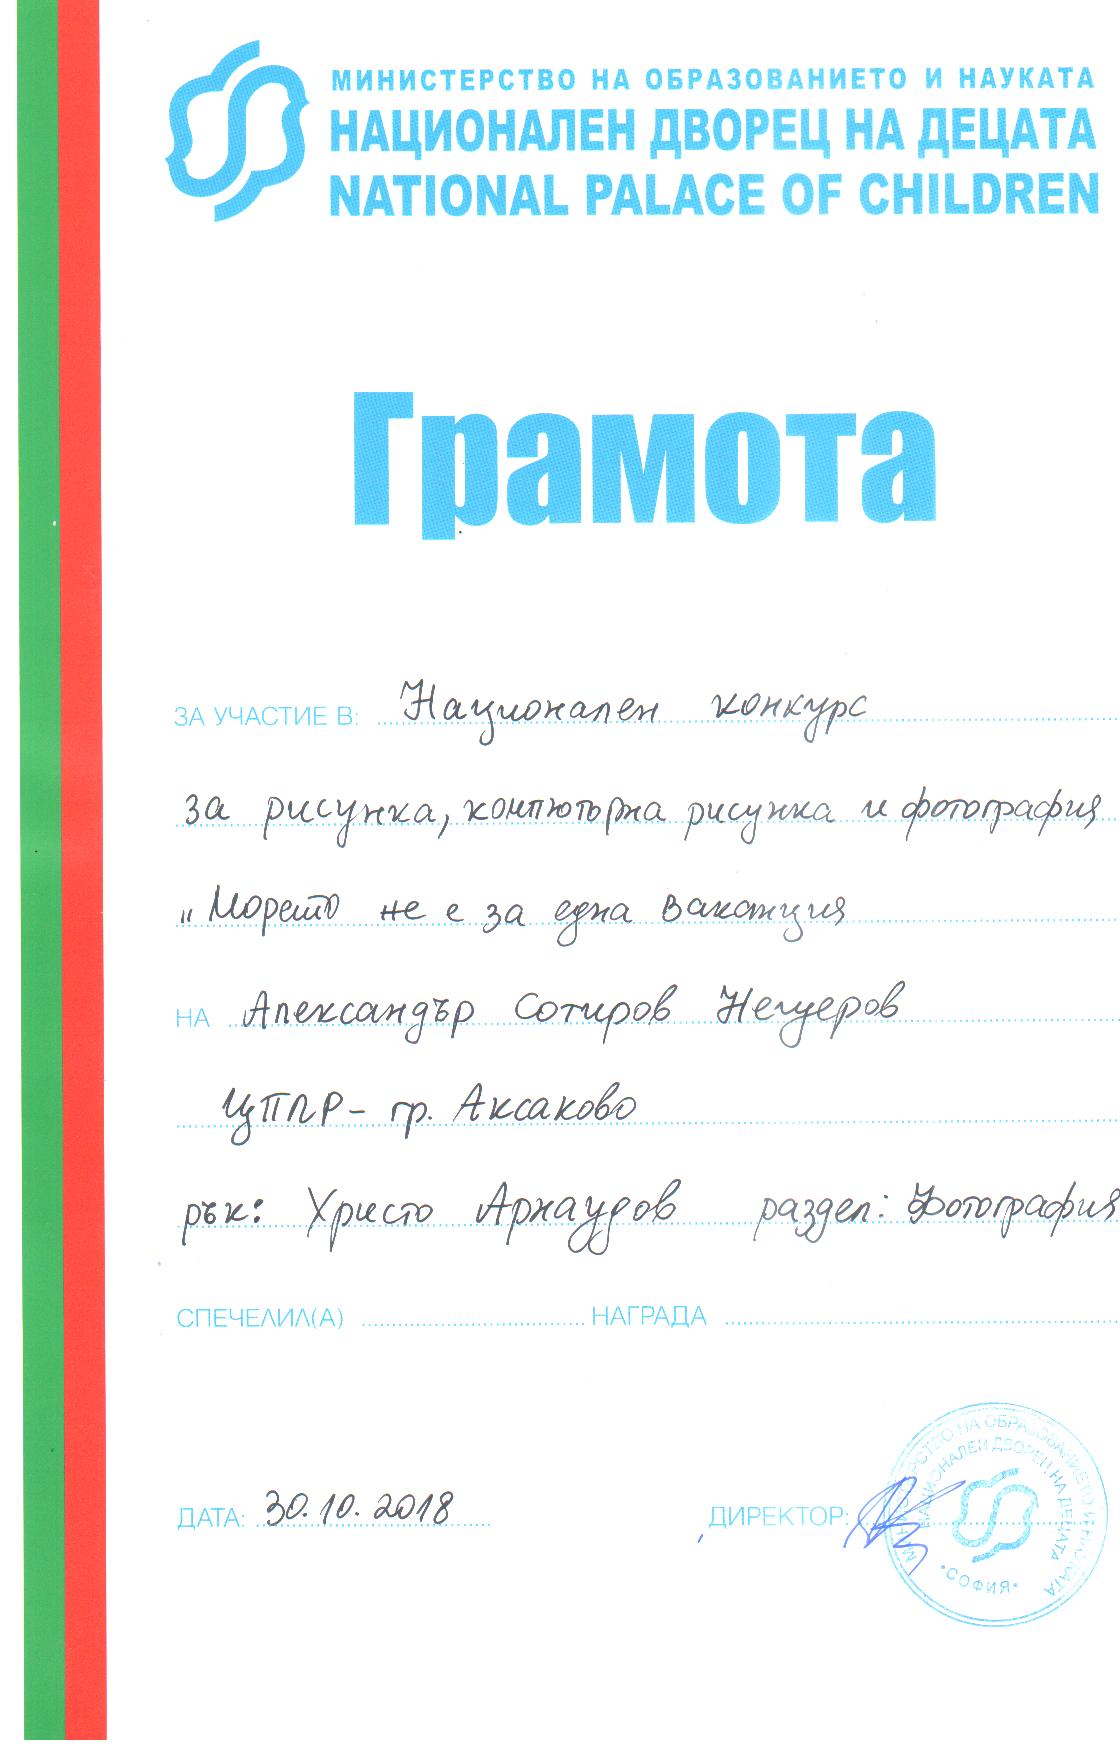 МИНИСТЕРСТВО НА ОБРАЗОВАНИЕТО И НАУКАТА
НАЦИОНАЛЕН ДВОРЕЦ НА ДЕЦАТА
NATIONAL PALACE OF CHILDREN
Грамота
ЗА УЧАСТИЕ В: Национален конкурс
за рисунка, компютърна рисунка и фотография
„Морето не е за една ваканция
НА Александър Сотиров
ЦПЛР - гр. Аксаково
рък: Христо Арнаудов раздел: Фотография
СПЕЧЕЛИЛ(А) НАГРАДА
ДАТА: 30.10.2018 ДИРЕКТОР:
МИНИСТЕРСТВО НА ОБРАЗОВАНИЕТО И НАУКАТА
НАЦИОНАЛЕН ДВОРЕЦ НА ДЕЦАТА
•СОФИЯ•